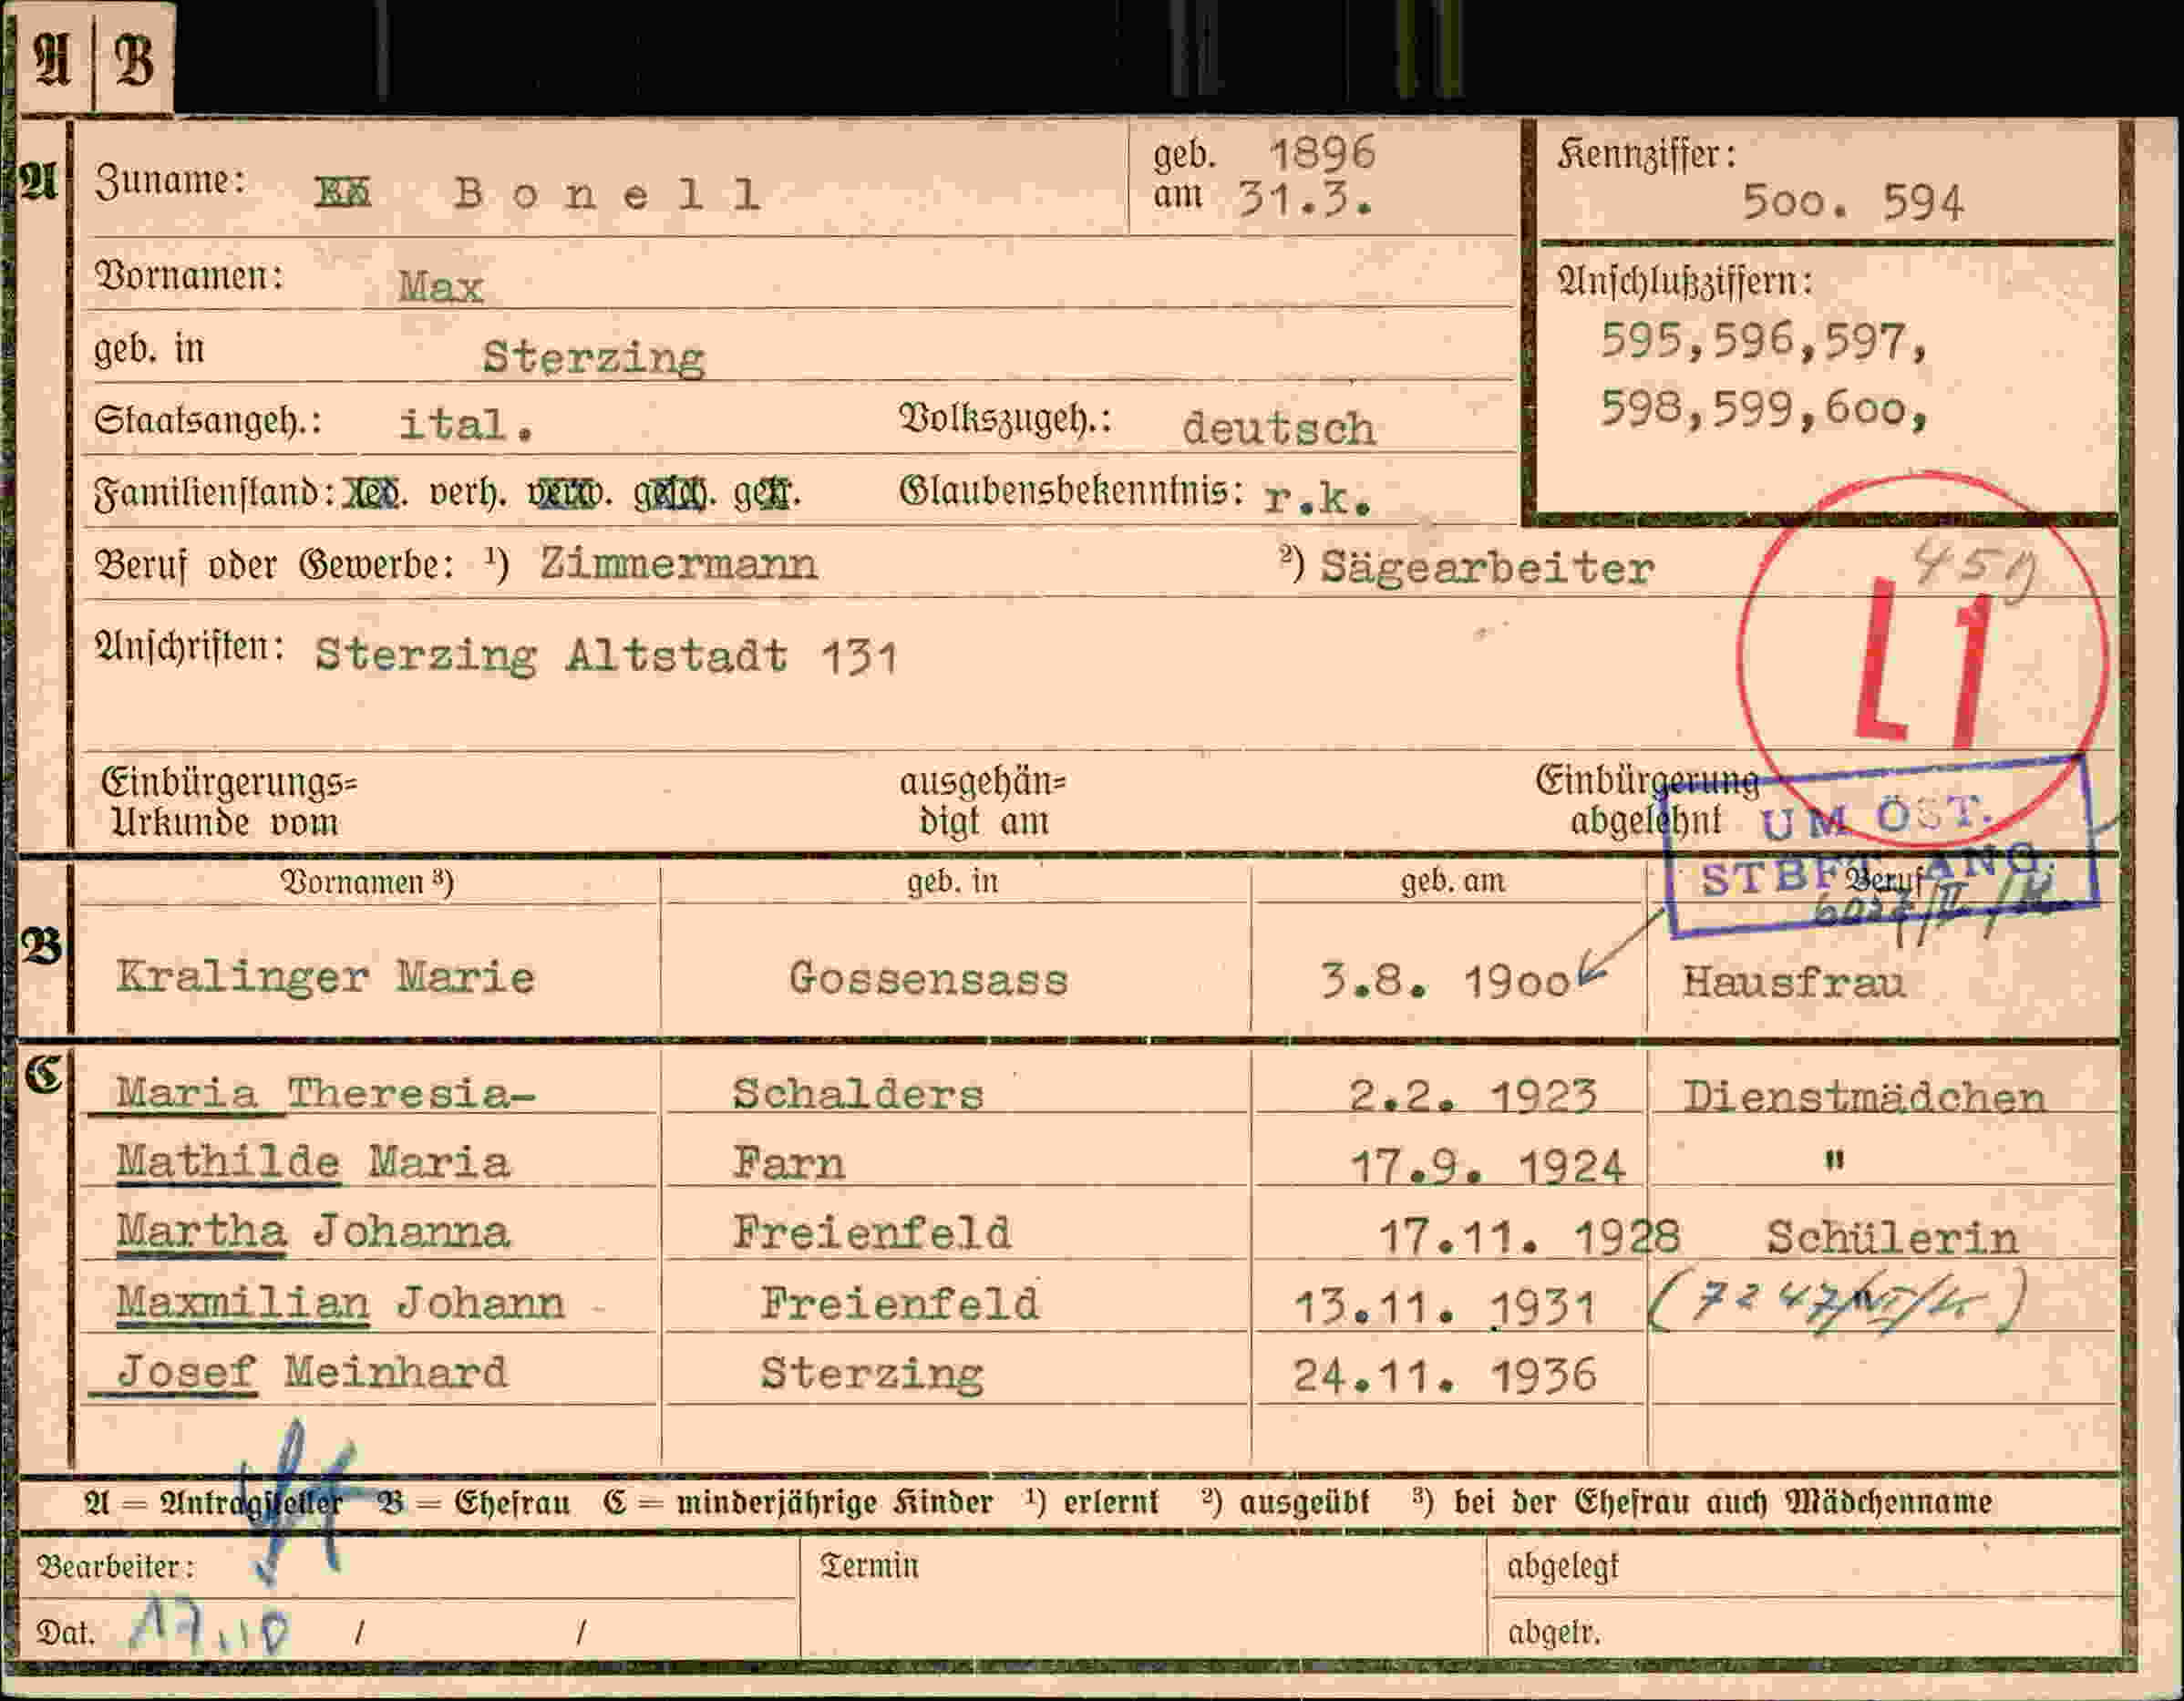 A B
A
Zuname: Bonell
geb. am 1896 31.3.
Kennziffer:
500. 594
Vornamen: Max
Anschlußziffern:
595,596,597,
598,599,600,
geb. in Sterzing
Staatsangeh.: ital. Volkszugeh.: deutsch
Familienstand: led. verh. verw. gesch. getr. Glaubensbekenntnis: r.k.
Beruf oder Gewerbe: ¹) Zimmermann ²) Sägearbeiter
L1
Anschriften: Sterzing Altstadt 131
Einbürgerungs= ausgehän= Einbürgerung
Urkunde vom digt am abgelehnt
UM ÖST.
STBFT ANG.
B
Vornamen ³) geb. in geb. am Beruf
Kralinger Marie Gossensass 3.8. 1900 Hausfrau
C
Maria Theresia- Schalders 2.2. 1923 Dienstmädchen
Mathilde Maria Farn 17.9. 1924 "
Martha Johanna Freienfeld 17.11. 1928 Schülerin
Maxmilian Johann Freienfeld 13.11. 1931
Josef Meinhard Sterzing 24.11. 1936
A = Antragsteller B = Ehefrau C = minderjährige Kinder ¹) erlernt ²) ausgeübt ³) bei der Ehefrau auch Mädchenname
Bearbeiter: Termin abgelegt
Dat. 17.10 / / abgetr.